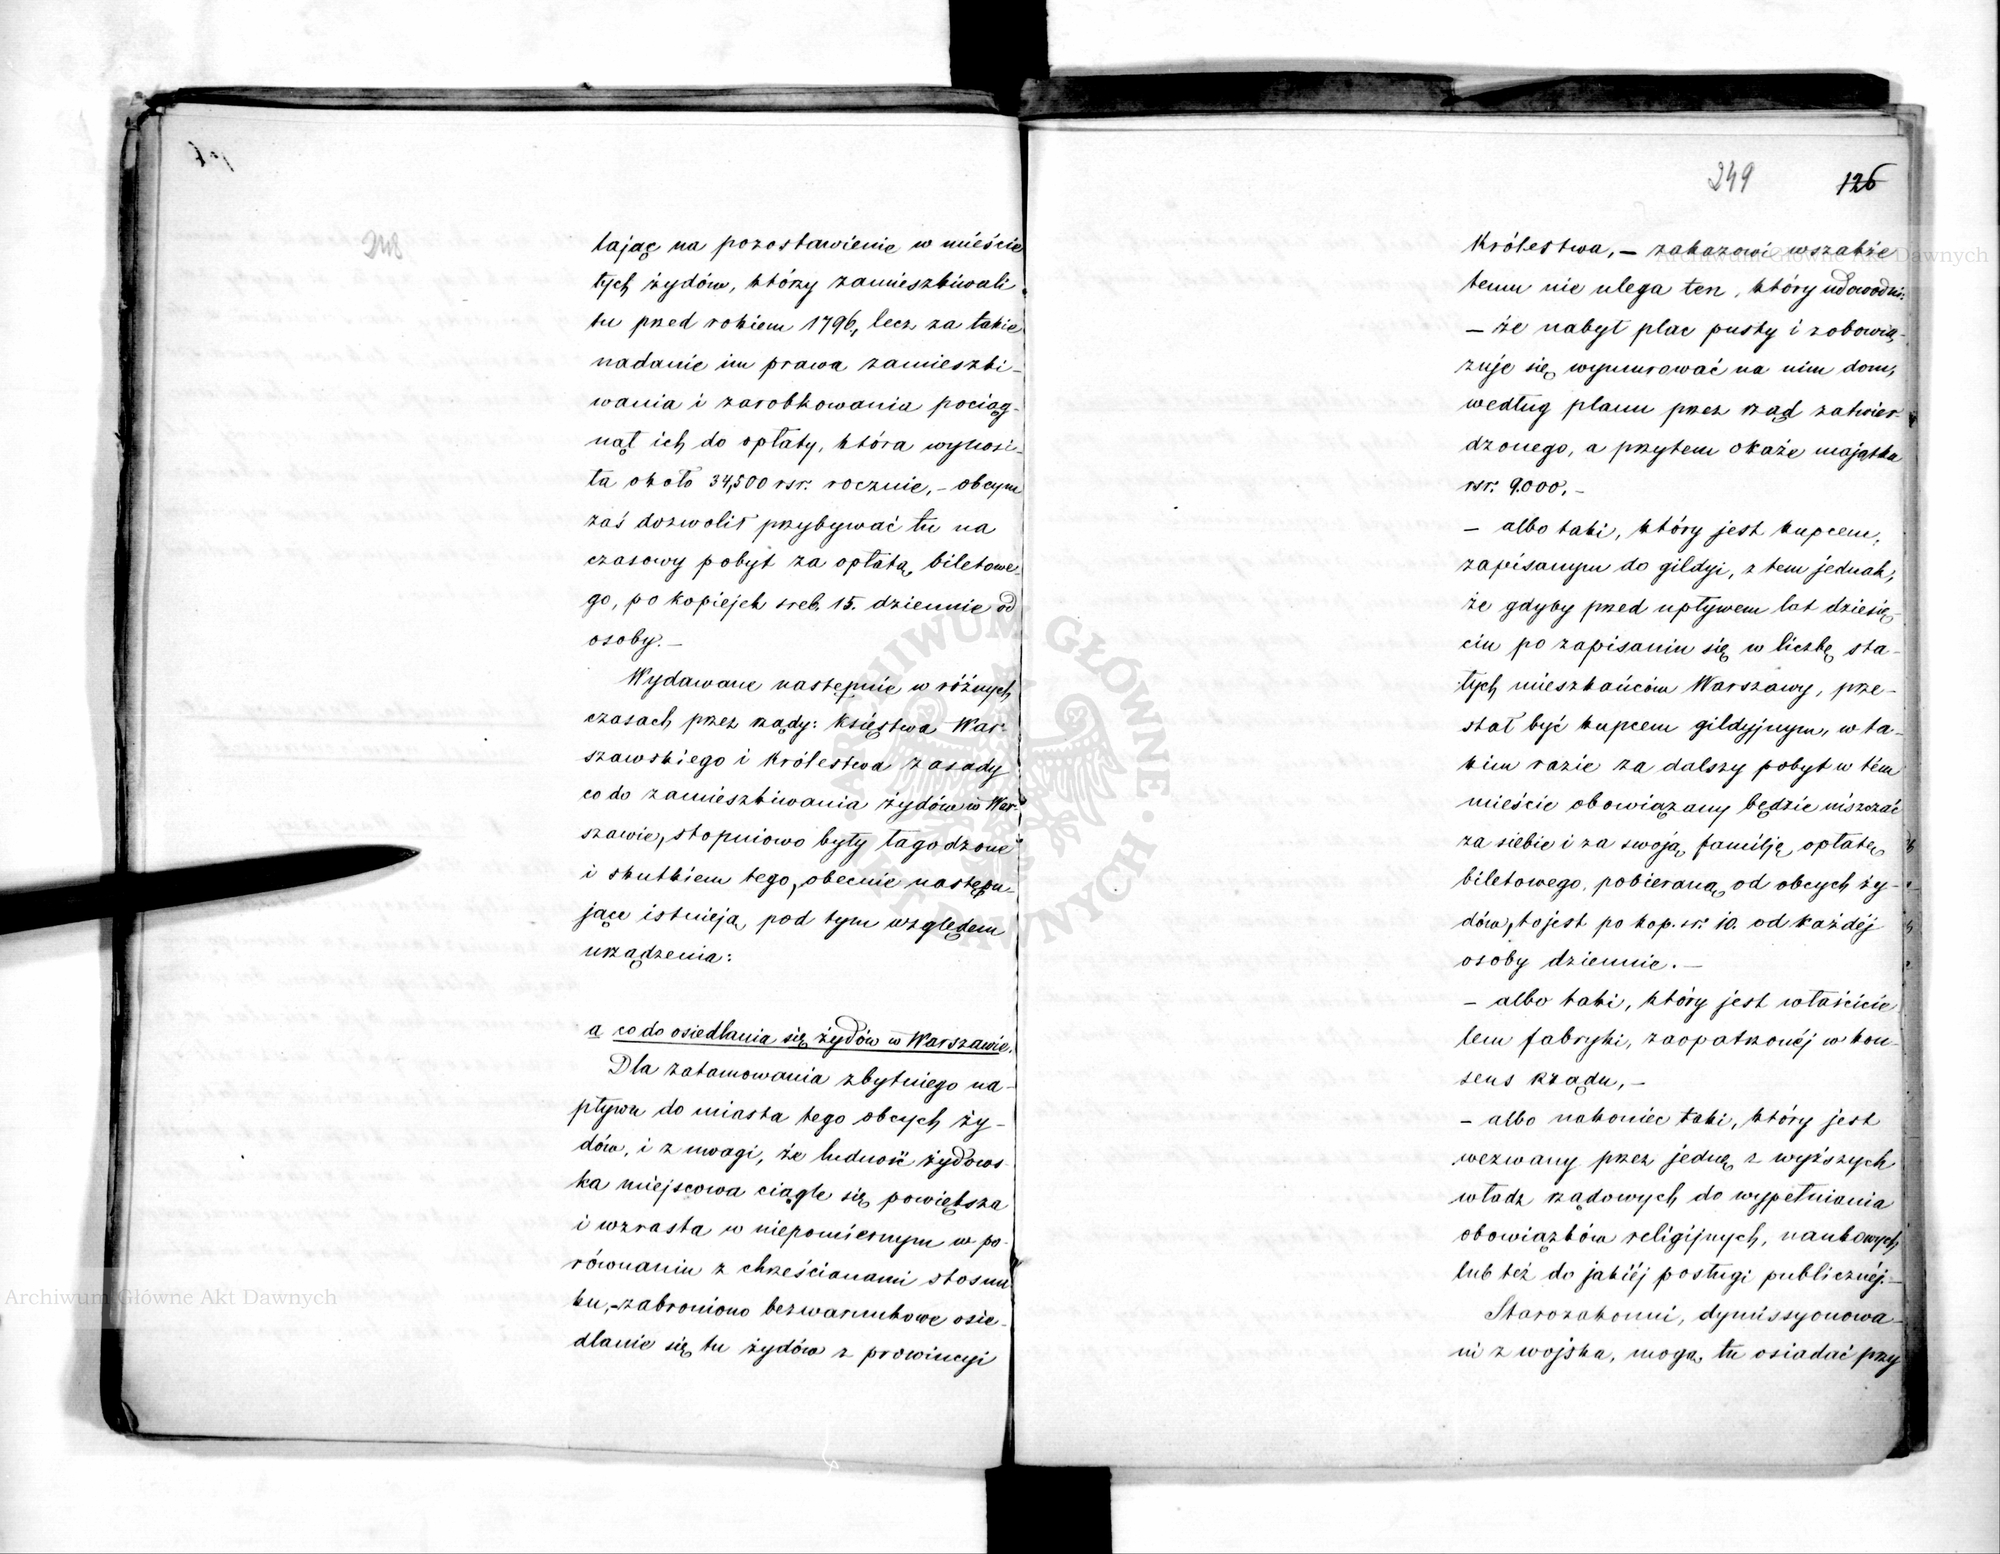 248
lając na pozostawienie w mieście
tych żydów, którzy zamieszkiwali
tu przed rokiem 1796, lecz za takie
nadanie im prawa zamieszki-
wania i zarobkowania pociąg-
nął ich do opłaty, która wynosi-
ła około 34,500 rsr. rocznie, – obcym
zaś dozwolił przybywać tu na
czasowy pobyt za opłatą biletowe-
go, po kopiejek sreb. 15. dziennie od
osoby. –
Wydawane następnie w różnych
czasach przez rządy: Księstwa War-
szawskiego i Królestwa zasady
co do zamieszkiwania żydów w War-
szawie, stopniowo były łagodzone
i skutkiem tego, obecnie następu-
jące istnieją pod tym względem
urządzenia:
a co do osiedlania się żydów w Warszawie.
Dla zatamowania zbytniego na-
pływu do miasta tego obcych ży-
dów, i z uwagi, że ludność żydows-
ka miejscowa ciągle się powiększa
i wzrasta w niepomiernym w po-
równaniu z chrześcianami stosun-
ku, – zabroniono bezwarunkowe osie-
dlanie się tu żydów z prowincyi
249 126
Królestwa, – zakazowi wszakże
temu nie ulega ten, który udowodni:
– że nabył plac pusty i zobowią-
zuje się wymurować na nim dom,
według planu przez rząd zatwier-
dzonego, a przytem okaże majątku
rsr. 9.000, –
– albo taki, który jest kupcem,
zapisanym do gildyi, z tem jednak,
że gdyby przed upływem lat dziesię-
ciu po zapisaniu się w liczbę sta-
łych mieszkańców Warszawy, prze-
stał być kupcem gildyjnym, w ta-
kim razie za dalszy pobyt w tém
mieście obowiązany będzie uiszczać
za siebie i za swoją familję opłatę
biletowego, pobieraną od obcych ży-
dów, to jest po kop. sr. 10. od każdéj
osoby dziennie. –
– albo taki, który jest właścicie
lem fabryki, zaopatrzonéj w kon-
sens rządu, –
– albo nakoniec taki, który jest
wezwany przez jedną z wyższych
władz rządowych do wypełniania
obowiązków religijnych, naukowych
lub też do jakiéj posługi publicznéj. –
Starozakonni, dymissyonowa-
ni z wojska, mogą tu osiadać przy
ARCHIWUM GŁÓWNE AKT DAWNYCH
Archiwum Główne Akt Dawnych
Archiwum Główne Akt Dawnych